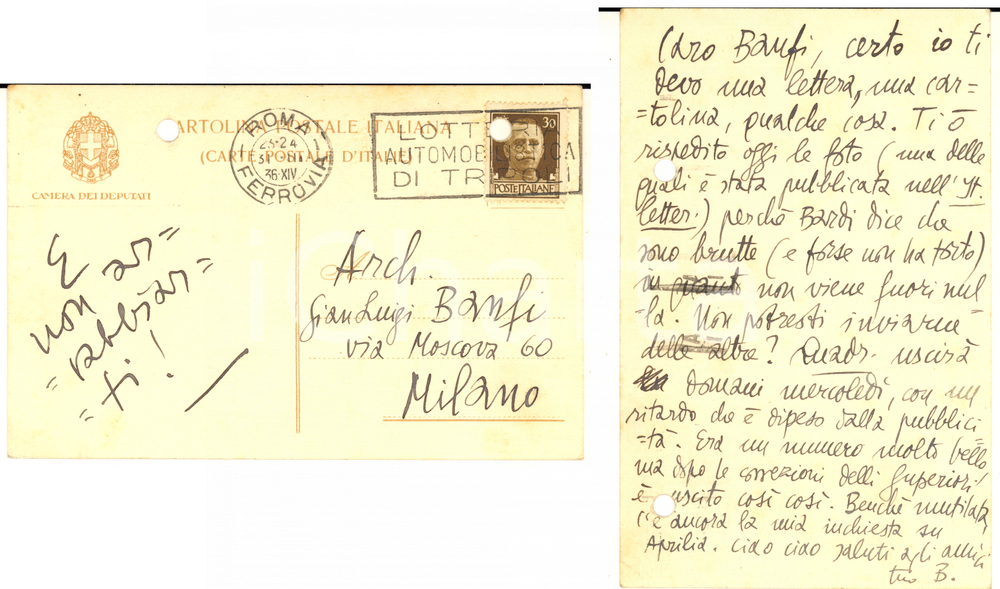 CARTOLINA POSTALE ITALIANA
(CARTE POSTALE D'ITALIE)
CAMERA DEI DEPUTATI
ROMA
23-24
31
36·XIV
FERROVIA
LOTTERIA
AUTOMOBILISTICA
DI TRIPOLI
30
POSTE ITALIANE
E
non ar=
=rabbiar=
=ti!
Arch.
Gianluigi Banfi
via Moscova 60
Milano
Caro Banfi, certo io ti
devo una lettera, una car=
=tolina, qualche cosa. Ti ò
rispedito oggi le foto (una delle
quali è stata pubblicata nell'It.
letter.) perchè Bardi dice che
sono brutte (e forse non ha torto)
in quanto non viene fuori nul
=la. Non potresti inviarne
delle altre? Quadr. uscirà
domani mercoledì, con un
ritardo che è dipeso dalla pubblici
=tà. Era un numero molto bello
ma dopo le correzioni delli Superiori
è uscito così così. Benchè mutilata
c'è ancora la mia inchiesta su
Aprilia. Ciao ciao saluti agli amici
tuo B.